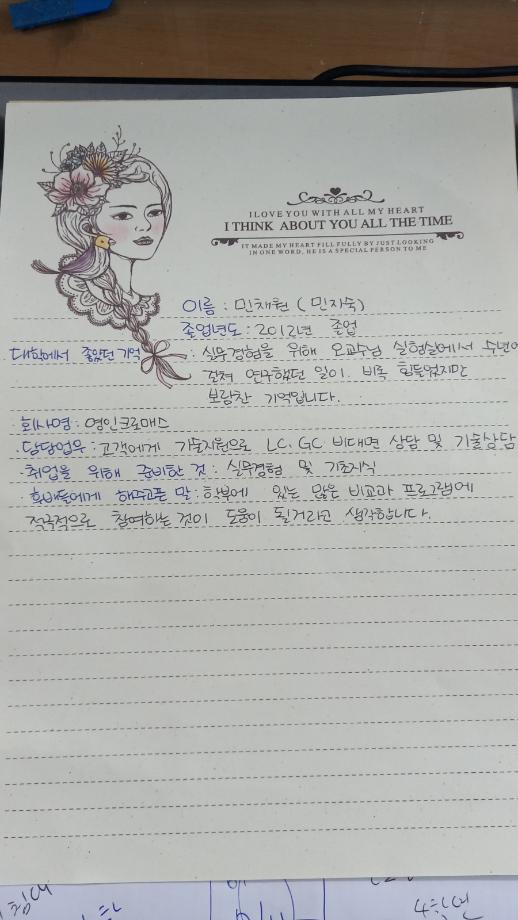 I LOVE YOU WITH ALL MY HEART
I THINK ABOUT YOU ALL THE TIME
IT MADE MY HEART FILL FULLY BY JUST LOOKING
IN ONE WORD, HE IS A SPECIAL PERSON TO ME
이름 : 민채원 (민자숙)
졸업년도 : 2012년 졸업
대학에서 좋았던 기억 : 실무경험을 위해 오교수님 실험실에서 수년에
걸쳐 연구했던 일이 비록 힘들었지만
보람찬 기억입니다.
·회사명 : 영인크로매스
·담당업무 : 고객에게 기술지원으로 LC, GC 비대면 상담 및 기술상담
·취업을 위해 준비한 것 : 실무경험 및 기초지식
후배들에게 해주고픈 말 : 학부에 있는 많은 비교과 프로그램에
적극적으로 참여하는 것이 도움이 될거라고 생각합니다.